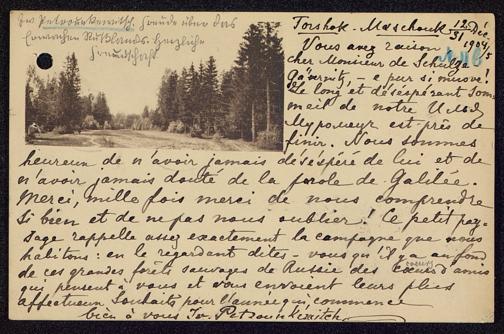 Iw. Petrounkewitsch, Freude über das
Erwachen Rußlands. Herzliche
Freundschaft
Torshok. Maschouk 12/31 Déc 1904/5
Vous avez raison
cher Monsieur de Schulze
Gävernitz, - e pur si muove!
Le long et désespérant som
meil de notre Илья
Муромец est près de
finir. Nous sommes
heureux de n'avoir jamais désespéré de lui et de
n'avoir jamais douté de la parole de Galilée.
Merci, mille fois merci de nous comprendre
si bien et de ne pas nous oublier! Ce petit pay-
sage rappelle assez exactement la campagne que nous
habitons: en le regardant dites-vous qu'il y a au fond
de ces grandes forêts sauvages de Russie des coeurs d'amis
qui pensent à vous et vous envoient leurs plus
affectueux souhaits pour l'année qui commence
bien à vous Iw. Petrounkewitch